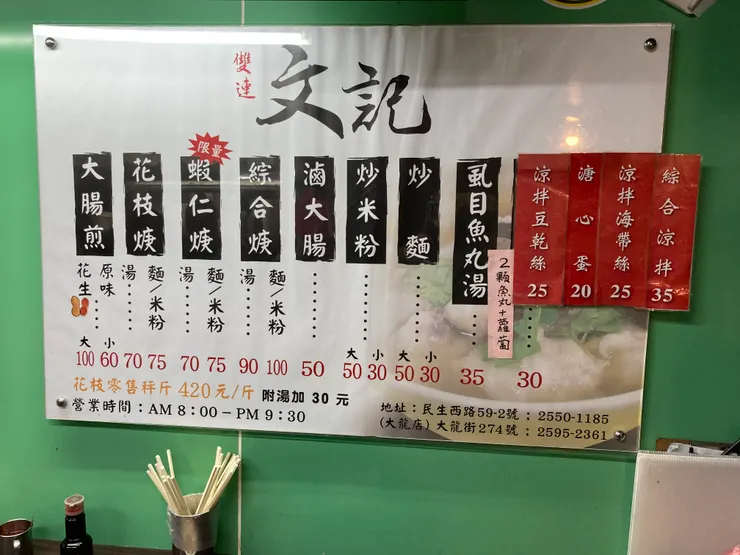 雙連
文記
大腸煎
原味
花生
大 小
100 60
花枝焿
湯 麵/米粉
70 75
限量
蝦仁焿
湯 麵/米粉
70 75
綜合焿
湯 麵/米粉
90 100
滷大腸
50
炒米粉
大 小
50 30
炒麵
大 小
50 30
虱目魚丸湯
35
2顆魚丸+蘿蔔
30
涼拌豆乾絲
25
溏心蛋
20
涼拌海帶絲
25
綜合涼拌
35
花枝零售秤斤 420元/斤 附湯加 30 元
營業時間:AM 8:00-PM 9:30
地址:民生西路59-2號:2550-1185
(大龍店)大龍街274號:2595-2361